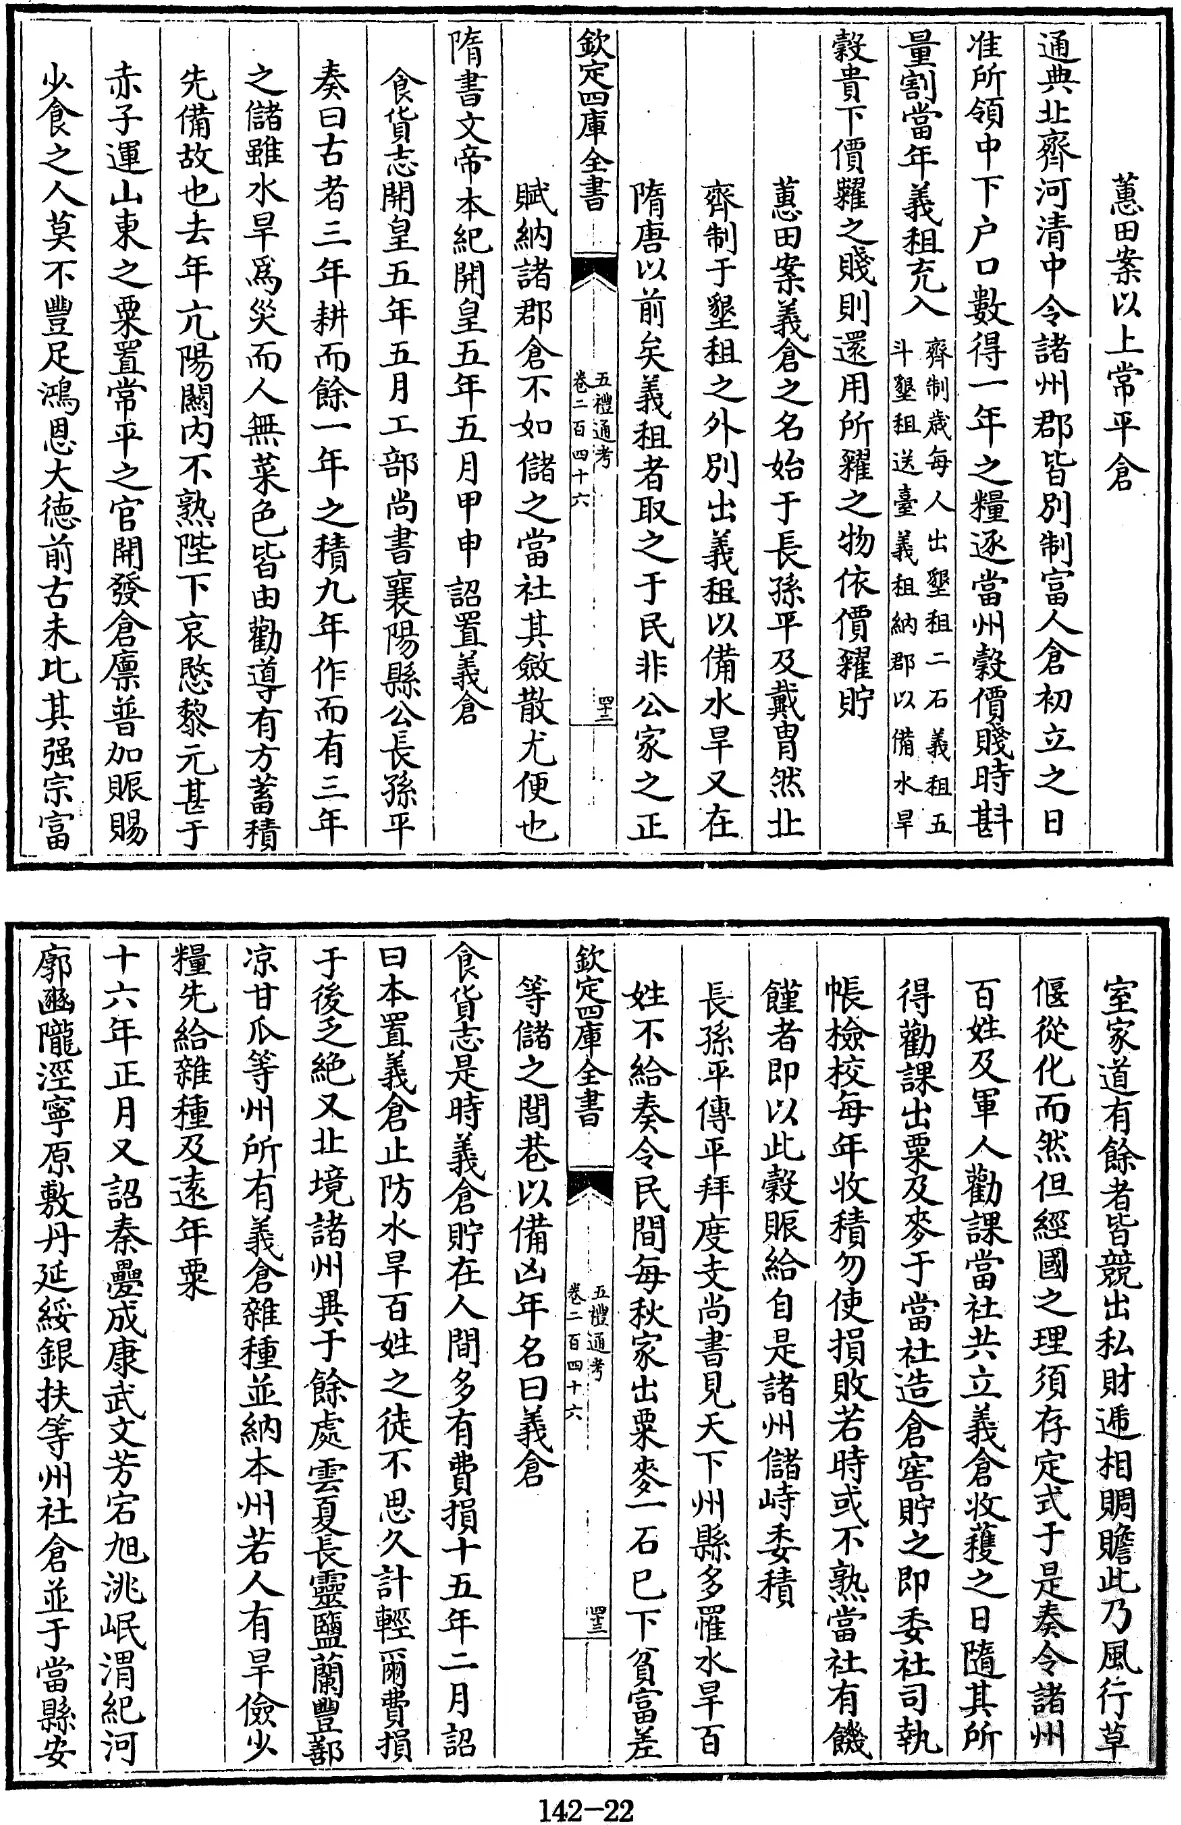 蕙田案以上常平倉
通典北齊河清中令諸州郡皆別制富人倉初立之日
准所領中下户口數得一年之糧逐當州穀價賤時斟
量割當年義租充入
齊制歲每人出墾租二石義租五
斗墾租送臺義租納郡以備水旱
穀貴下價糶之賤則還用所糶之物依價糴貯
蕙田案義倉之名始于長孫平及戴冑然北
齊制于墾租之外別出義租以備水旱又在
隋唐以前矣義租者取之于民非公家之正
欽定四庫全書
五禮通考
卷二百四十六
四十二
賦納諸郡倉不如儲之當社其斂散尤便也
隋書文帝本紀開皇五年五月甲申詔置義倉
食貨志開皇五年五月工部尚書襄陽縣公長孫平
奏曰古者三年耕而餘一年之積九年作而有三年
之儲雖水旱爲災而人無菜色皆由勸導有方蓄積
先備故也去年亢陽關内不熟陛下哀愍黎元甚于
赤子運山東之粟置常平之官開發倉廩普加賑賜
少食之人莫不豐足鴻恩大德前古未比其强宗富
室家道有餘者皆競出私財遞相賙贍此乃風行草
偃從化而然但經國之理須存定式于是奏令諸州
百姓及軍人勸課當社共立義倉收穫之日隨其所
得勸課出粟及麥于當社造倉窖貯之即委社司執
帳檢校每年收積勿使損敗若時或不熟當社有饑
饉者即以此穀賑給自是諸州儲峙委積
長孫平傳平拜度支尚書見天下州縣多罹水旱百
姓不給奏令民間每秋家出粟麥一石已下貧富差
欽定四庫全書
五禮通考
卷二百四十六
四十三
等儲之閭巷以備凶年名曰義倉
食貨志是時義倉貯在人間多有費損十五年二月詔
曰本置義倉止防水旱百姓之徒不思久計輕爾費損
于後乏絶又北境諸州異于餘處雲夏長靈鹽蘭豐鄯
凉甘瓜等州所有義倉雜種並納本州若人有旱儉少
糧先給雜種及遠年粟
十六年正月又詔秦疊成康武文芳宕旭洮岷渭紀河
廓豳隴涇寧原敷丹延綏銀扶等州社倉並于當縣安
142-22